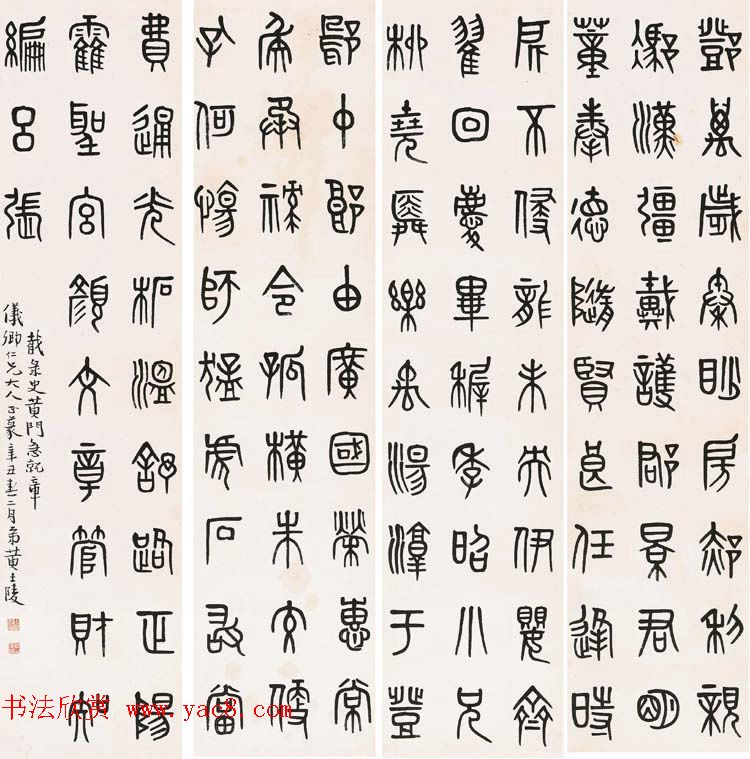 鄧萬歲秦眇房郝利親
馮漢彊戴護郡景君明
董奉德隨賢良任逢時
所不侵龍未央伊嬰齊
翟回慶畢稺季昭小兄
柳堯舜樂禹湯淳于登
中郎由廣國榮惠常
烏承祿令狐橫朱交便
孔何傷師猛虎石敢當
費通光柘溫舒路正陽
霍聖宮顏文章管財智
編呂張
彔史黃門急就章
儀卿仁兄大人正篆辛丑春二月弟黃士陵
书法欣赏 www.yac8.com